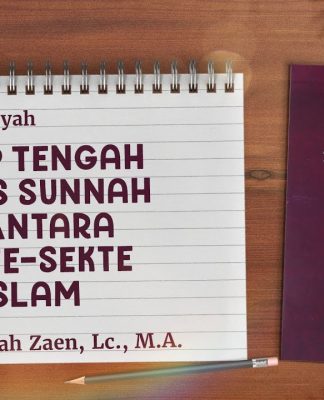 yah
P TENGAH
S SUNNAH
ANTARA
E-SEKTE
SLAM
ah Zaen, Lc., M.A.